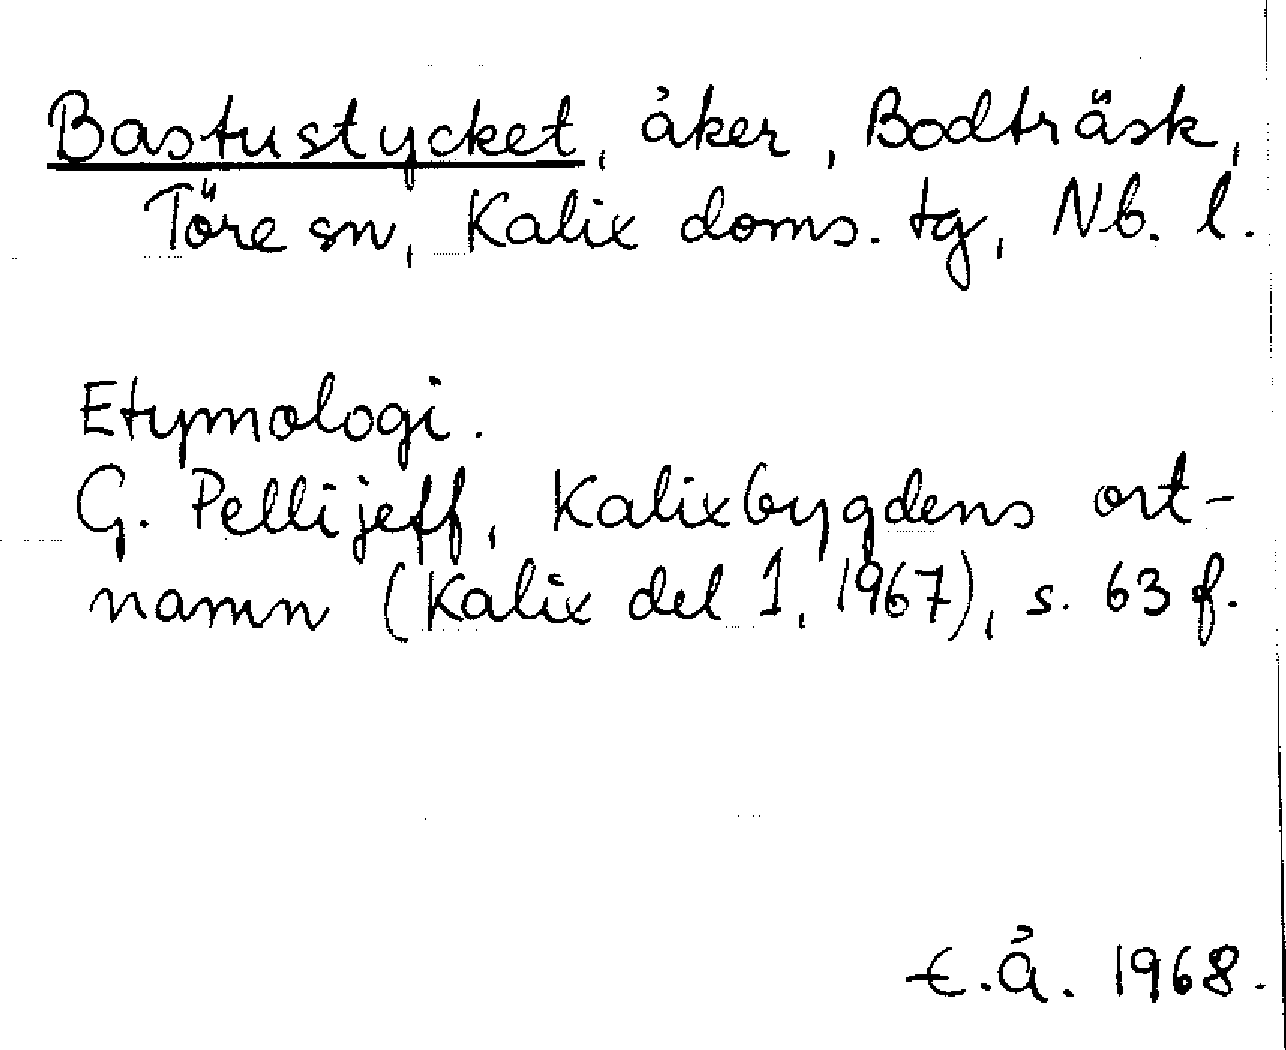 Bastustycket, åker, Bodträsk,
Töre sn, Kalix doms. tg, Nb. l.
Etymologi.
G. Pellijeff, Kalixbygdens ort-
namn (Kalix del 1, 1967), s. 63 f.
E.Å. 1968.